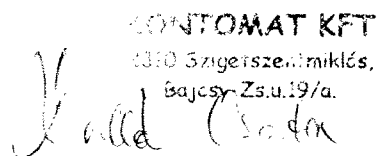 KONTOMAT KFT
2310 Szigetszentmiklós,
Bajcsy-Zs.u.19/a.